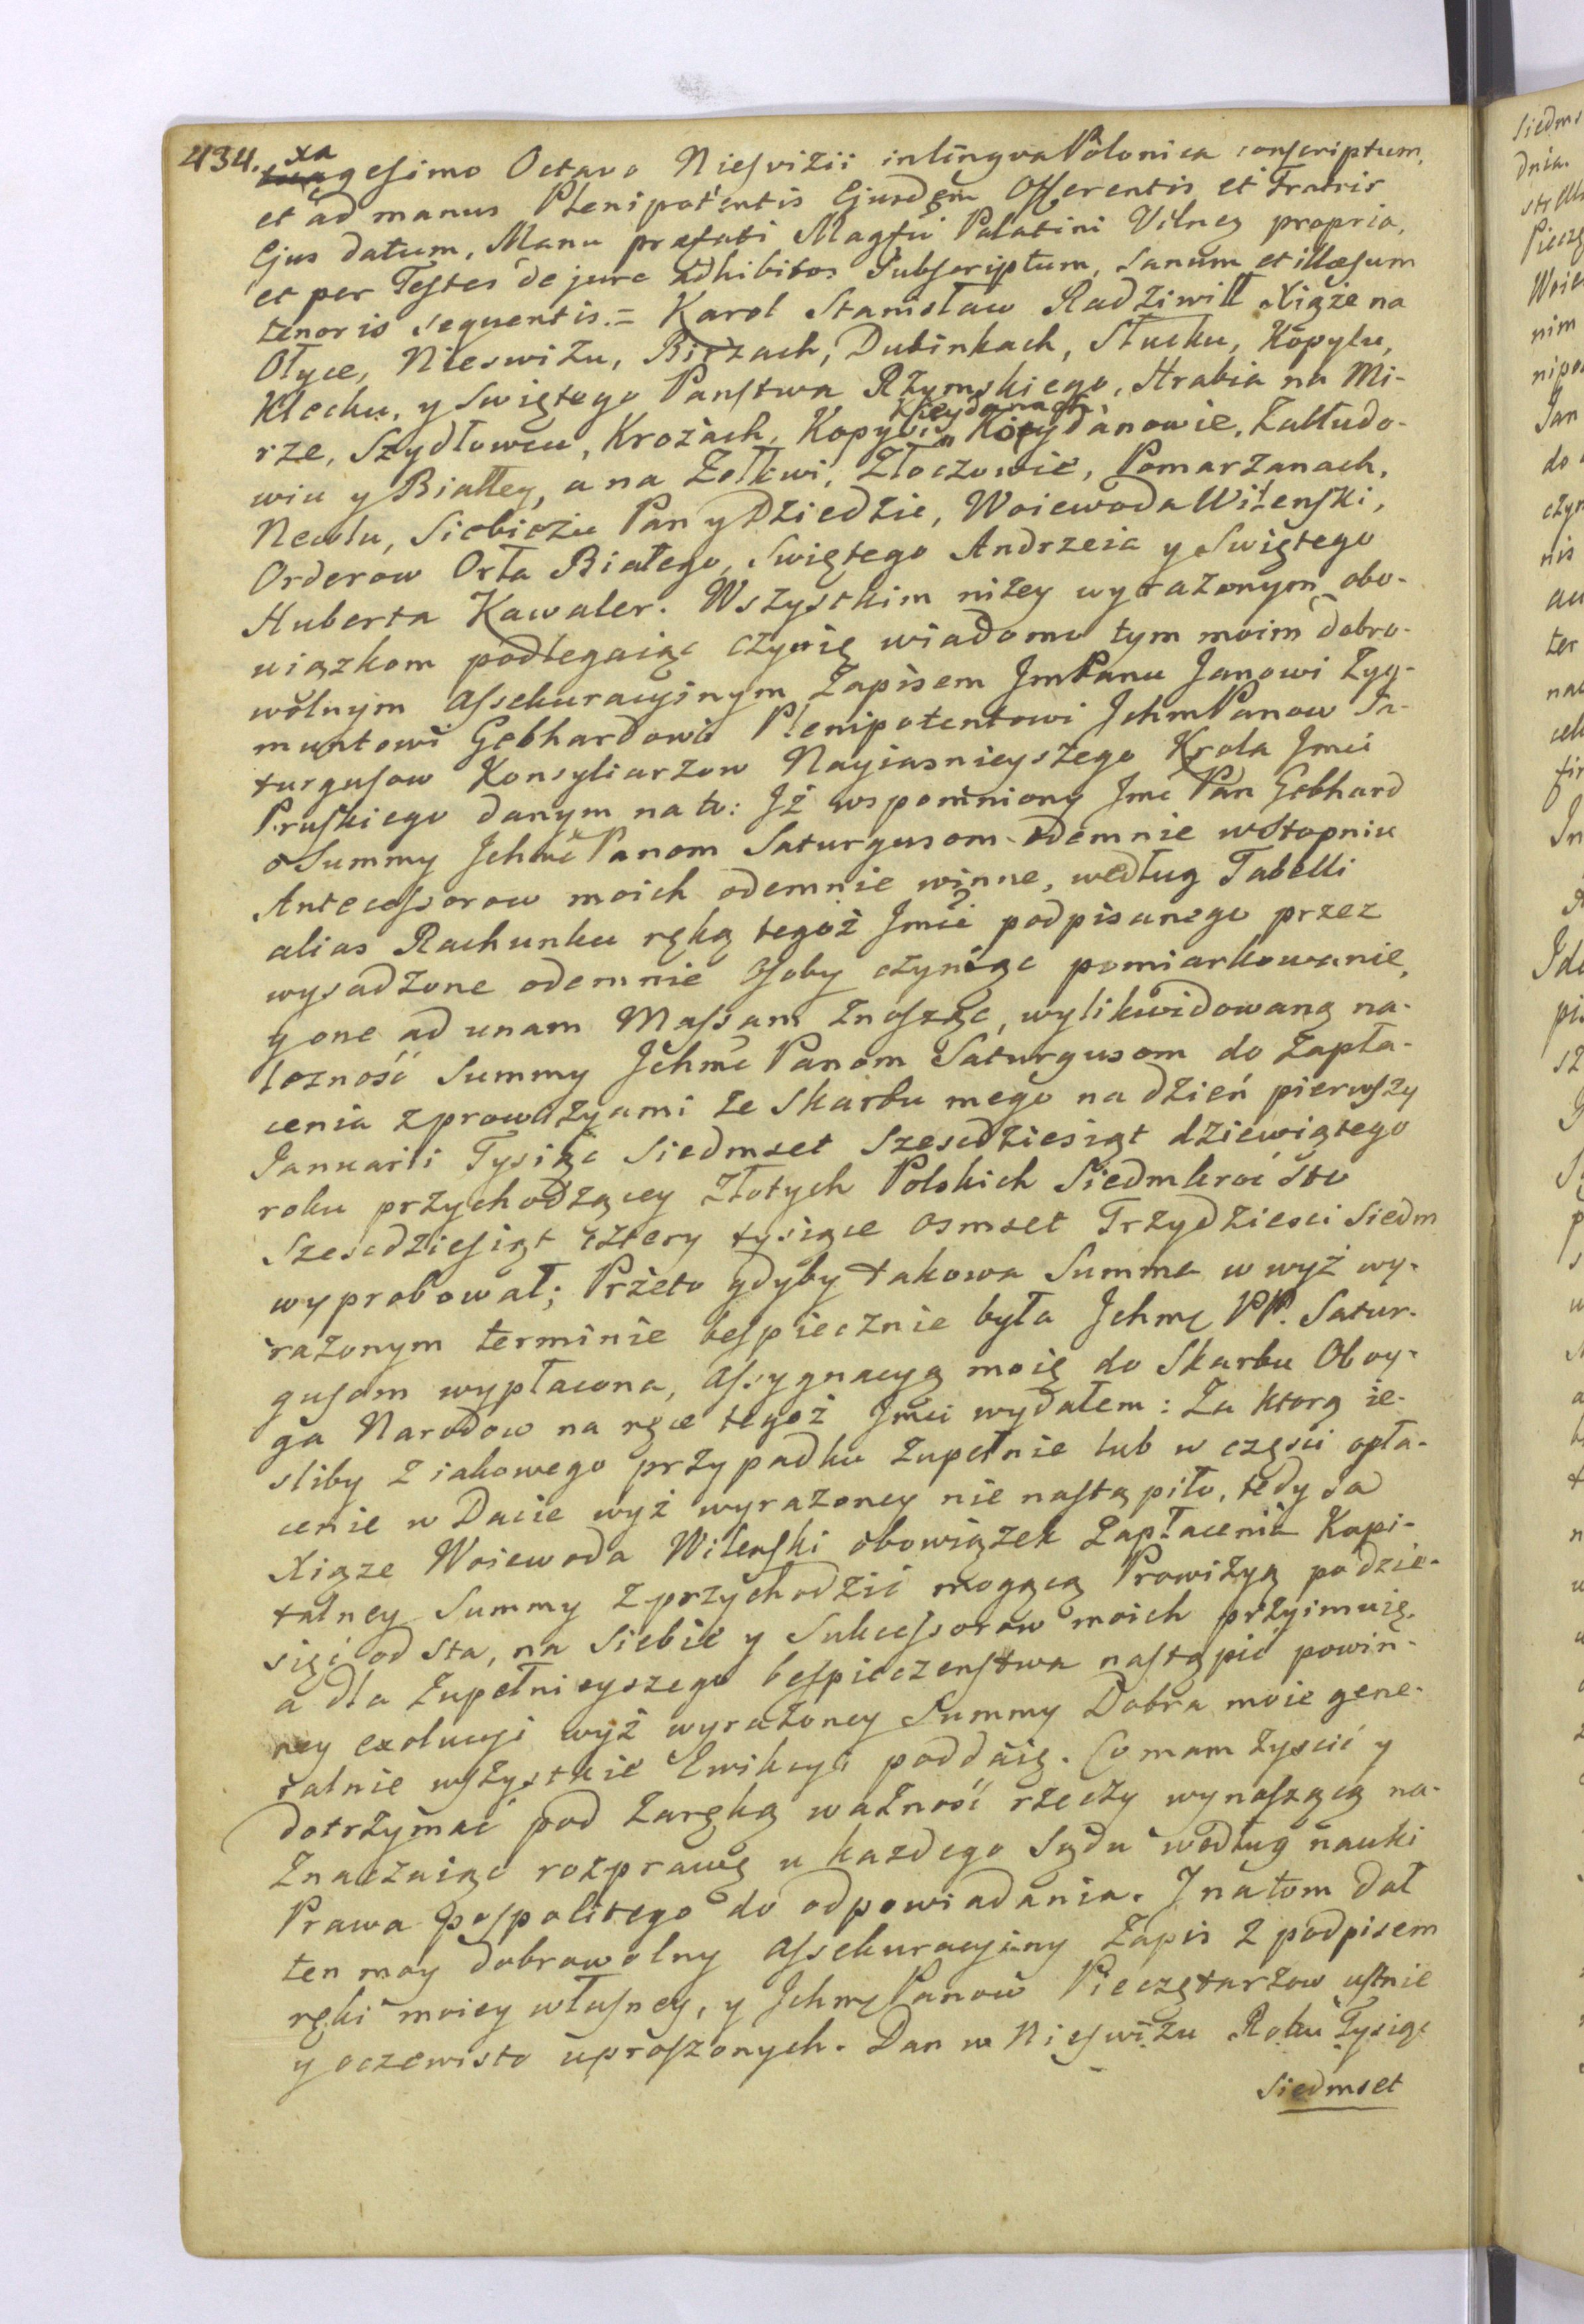 434. xa
gesimo Octavo Niesvizii in lingva Polonica conscriptum,
et ad manus Plenipotentis Ejusdem Offerentis et Fratris
Ejus datum, Manu præfati Magfci Palatini Vilneg propria,
et per Testes de jure adhibitos Subscriptum, sanum et illæsum
tenoris sequentis. = Karol Stanisław Radziwiłł Xiąże na
Ołyce, Nieswiżu, Birżach, Dubinkach, Słucku, Kopylu,
Klecku, y Swiętego Panstwa Rzymskiego, Hrabia na Mi-
rze, Szydłowcu, Krożach, Kopysiu Kieydanach Koydanowie, Zabłudo-
wiu y Białłey, a na Żołkwi, Złoczowie, Pomarzanach,
Newlu, Siebieżu Pan y Dziedzic, Woiewoda Wilenski,
Orderow Orła Białego, Swiętego Andrzeia y Swiętego
Huberta Kawaler. Wszystkim niżey wyrażonym obo-
wiązkom podlegaiąc czynię wiadomo tym moim dobro-
wolnym Assekuracyinym Zapisem JmPanu Janowi Zyg-
muntowi Gebhardowi Plenipotentowi JchmPanow Sa-
turgusow Konsyliarzow Nayiasnieyszego Krola Jmci
Pruskiego danym na to: Jż wspomniony Jmc Pan Gebhard
o Summy Jchmc Panom Saturgusom odemnie w Stopniu
Antecessorow moich odemnie winne, według Tabelli
alias Rachunku ręką tegoż Jmci podpisanego przez
wysadzone odemnie Osoby czyniąc pomiarkowanie,
y one ad unam Massam znosząc, wylikwidowaną na-
lezność Summy Jchmc Panom Saturgusom do zapła-
cenia z prowizyami ze Skarbu mego na dzień pierwszy
Januarii Tysiąc Siedmset Szescdziesiąt dziewiątego
roku przychodzącey Złotych Polskich Siedmkroć Sto
Szescdziesiąt cztery tysiące osmset Trzydziesci siedm
wyprobował; Przeto gdyby takowa Summa w wyż wy-
rażonym terminie bespiecznie była Jchmc PP. Satur-
gusom wypłacona, Assygnacyą moię do Skarbu Oboy-
ga Narodow na ręce tegoż Jmci wydałem: Za ktorą ie-
sliby z iakowego przypadku zupełnie lub w częsci opła-
cenie w Dacie wyż wyrażoney nie nastąpiło, tedy Ja
Xiąże Woiewoda Wilenski obowiązek zapłacenia Kapi-
talney Summy z przychodzić mogącą Prowizyą po dzie-
sięć od sta, na siebie y Sukcessorow moich przyimuię,
a dla zupełnieyszego bespieczenstwa nastąpić powin-
ney exolucyi wyż wyrażoney Summy Dobra moie gene-
ralnie wszystkie Ewikcyi poddaię. Co mam zyscić y
dotrzymać pod zaręką ważność rzeczy wynoszącą na-
znaczaiąc rozprawę u każdego Sądu według nauki
Prawa Pospolitego do odpowiadania. J na tom dał
ten moy dobrowolny Assekuracyiny Zapis z podpisem
ręki moiey własney, y Jchmc Panow Pieczętarzow ustnie
y oczewisto uproszonych. Dan w Nieswiżu Roku Tysiąc
Siedmset